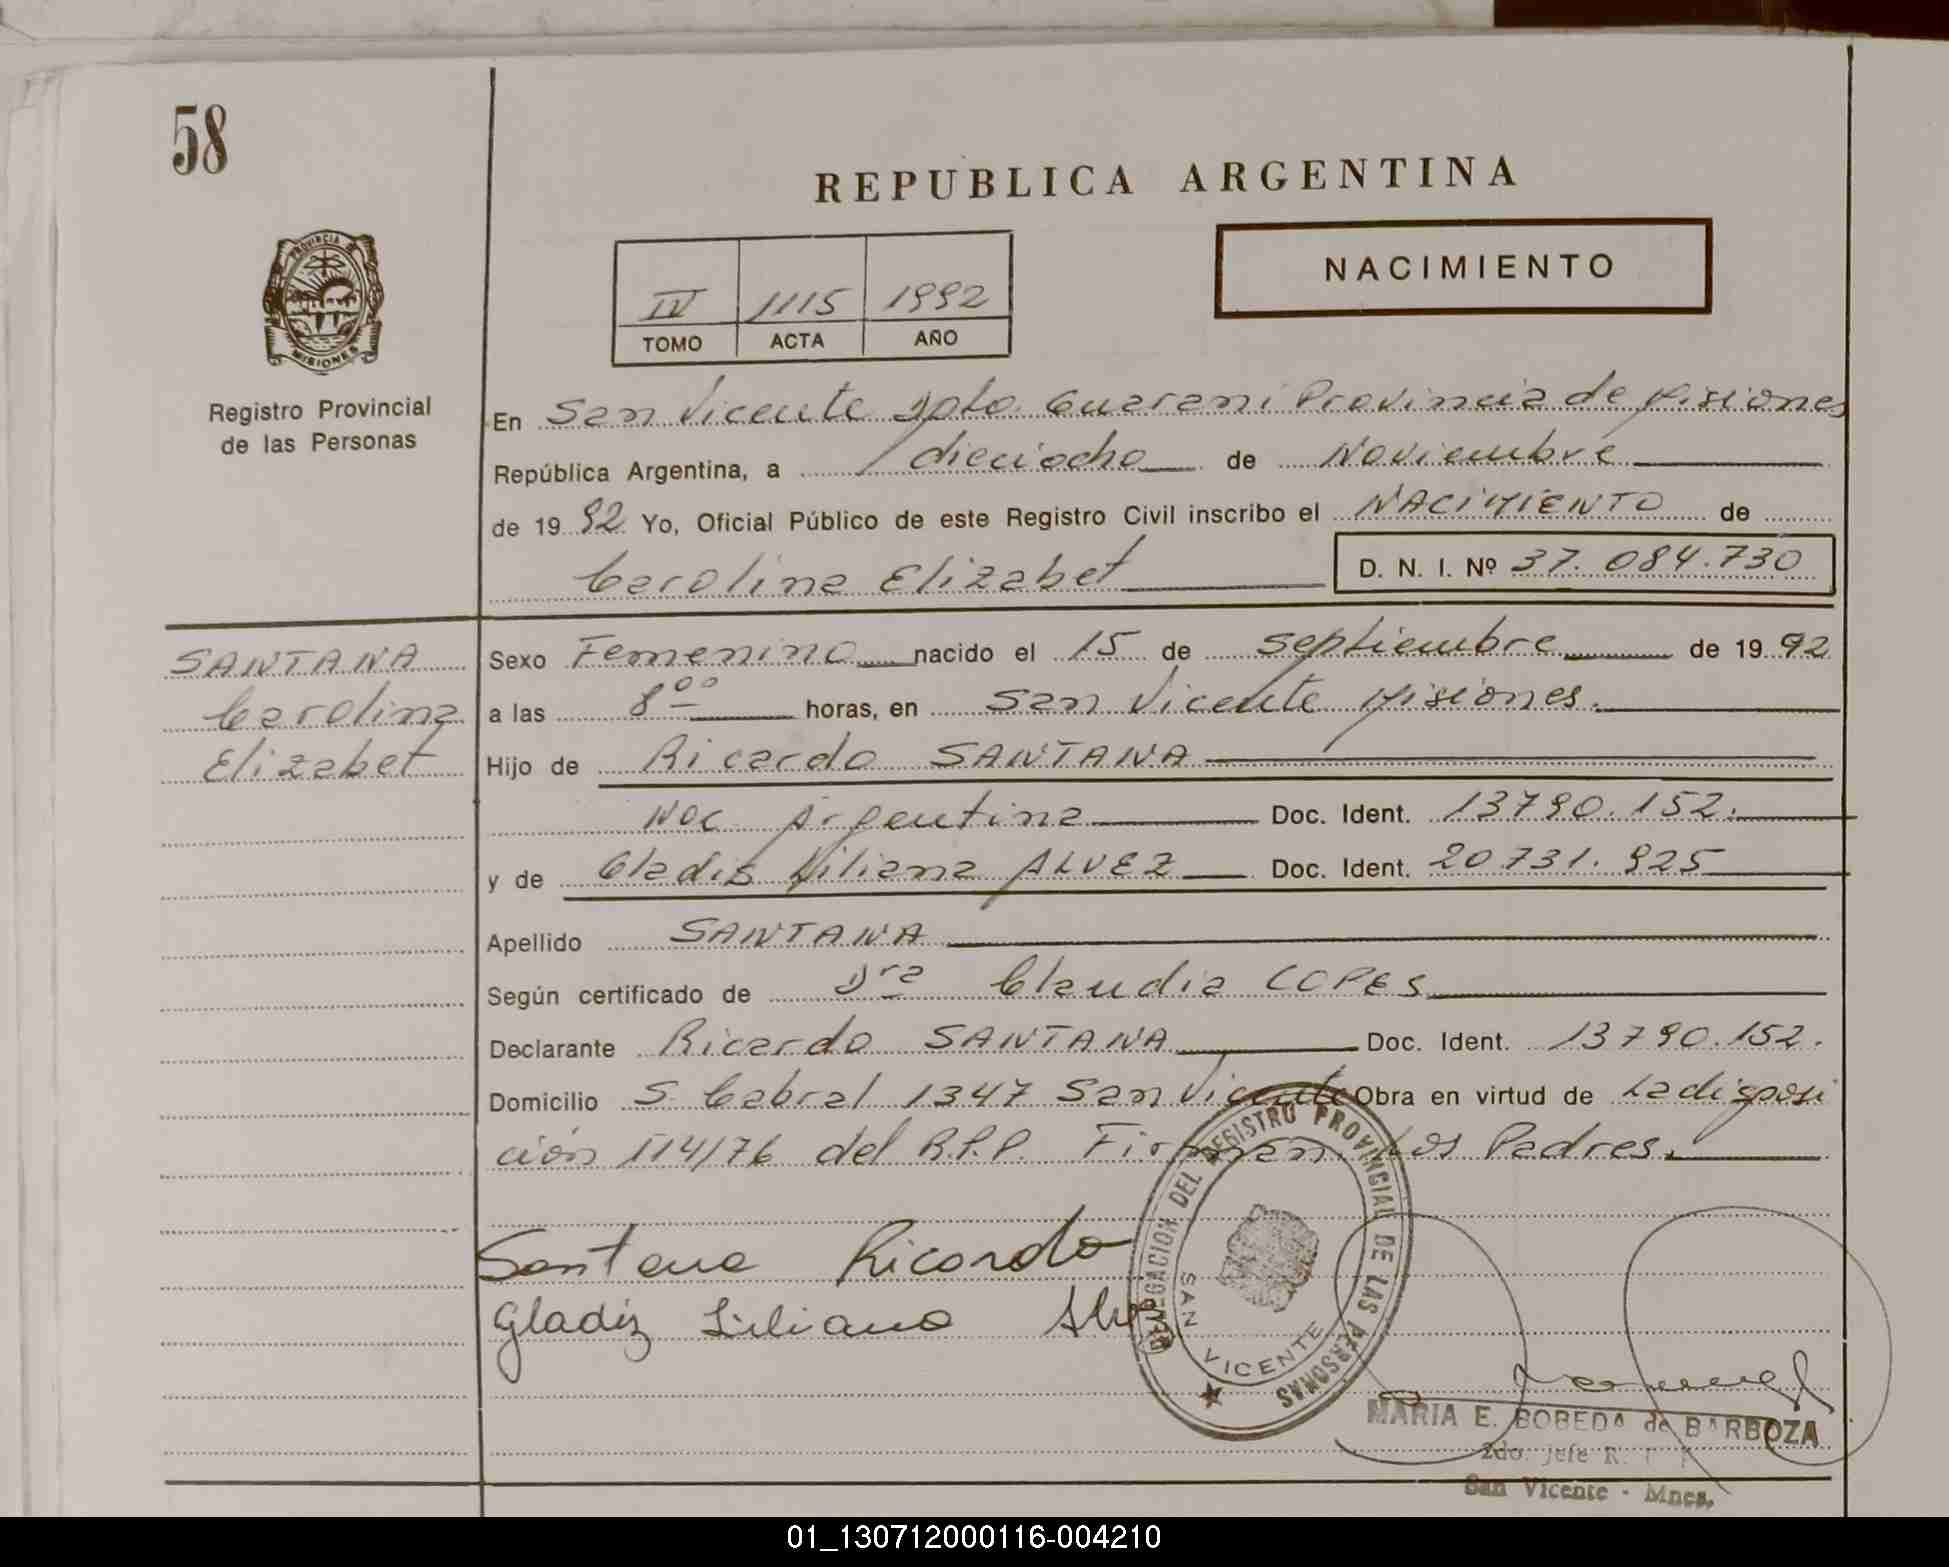 58
REPUBLICA ARGENTINA
NACIMIENTO
PROVINCIA DE MISIONES
Registro Provincial
de las Personas
IV 1115 1992
TOMO ACTA AÑO
En San Vicente Dpto. Guarani Provincia de Misiones
República Argentina, a dieciocho de Noviembre
de 1992 Yo, Oficial Público de este Registro Civil inscribo el NACIMIENTO de
Carolina Elizabet D. N. I. Nº 37.084.730
SANTANA
Carolina
Elizabet
Sexo Femenino nacido el 15 de Septiembre de 1992
a las 8⁰⁰ horas, en San Vicente Misiones.
Hijo de Ricardo SANTANA
Nac Argentina Doc. Ident. 13790.152.
y de Gladis Liliana ALVEZ Doc. Ident. 20731.925
Apellido SANTANA
Según certificado de Dra Claudia COPES
Declarante Ricardo SANTANA Doc. Ident. 13790.152.
Domicilio S. Cabral 1347 San Vicente Obra en virtud de La disposi
ción 114/76 del R.P.P. Firman Los Padres.
Santana Ricardo
Gladiz Liliana
DELEGACION DEL REGISTRO PROVINCIAL DE LAS PERSONAS
SAN VICENTE
MARIA E. BOBEDA de BARBOZA
2do. Jefe R.
San Vicente - Mnes.
01_130712000116-004210